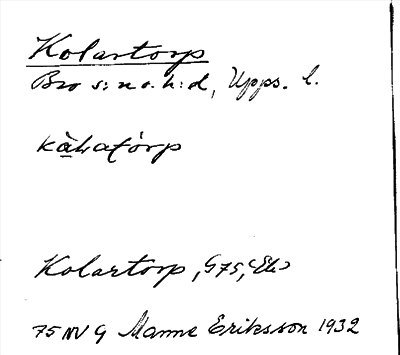 Kolartorp
Bro s:n o. h:d, Upps. l.
Kolartorp, G75, Ek
75 NV G Manne Eriksson 1932